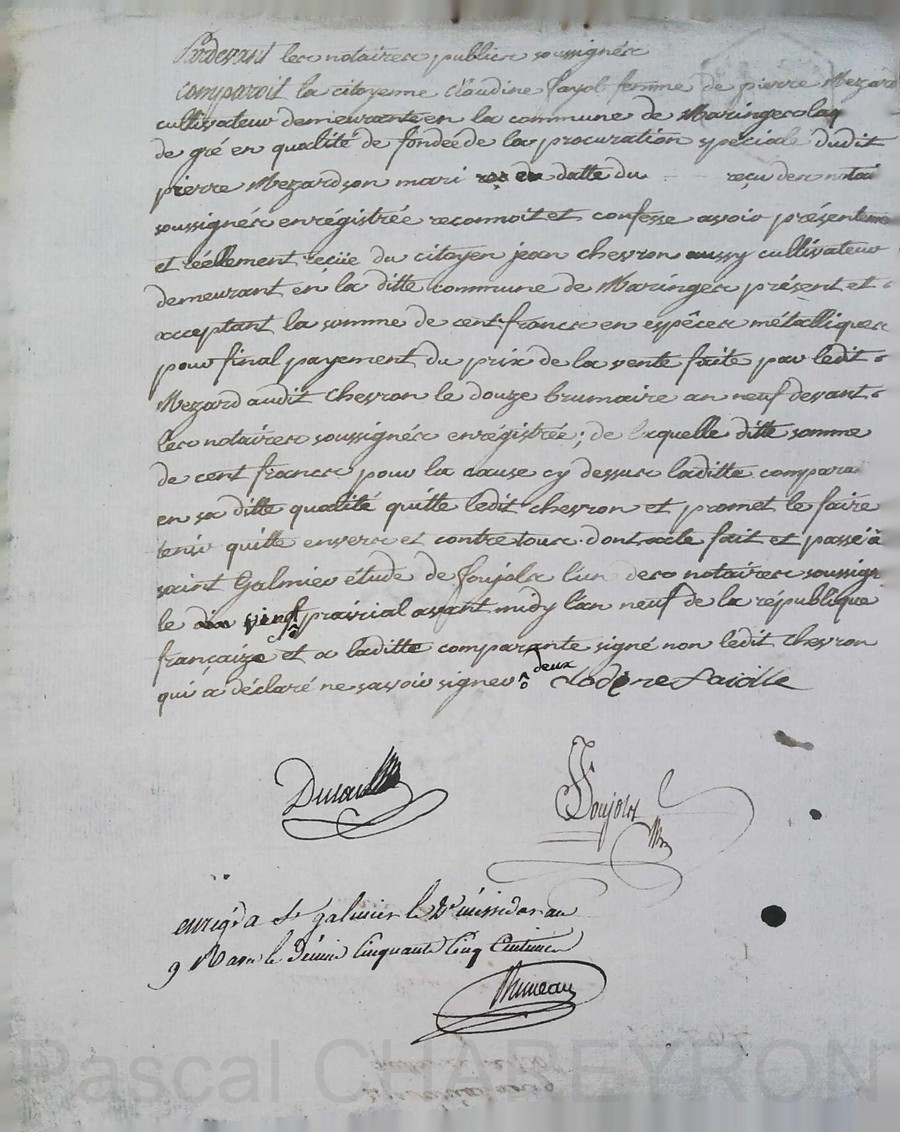 Pardevant les notaires publics soussignés
comparoit la citoyenne claudine fayol femme de pierre Mezard
cultivateur demeurante en la commune de Maringes laq
de gré en qualité de fondée de la procuration speciale dudit
pierre Mezard son mari en datte du reçu des notai
soussignés enrégistrée reconnoit et confesse avoir présenteme
et réellement reçüe du citoyen jean chevron aussy cultivateur
demeurant en la ditte commune de Maringes présent et
acceptant la somme de cent francs en espêces métalliques
pour final payement du prix de la vente faite par ledit
Mezard audit chevron le douze brumaire an neuf devant
les notaires soussignés enrégistrée; de laquelle ditte somme
de cent francs pour la cause cy dessus laditte compara
en sa ditte qualité quitte ledit chevron et promet le faire
tenir quitte envers et contre tous. dont acte fait et passé à
saint Galmier étude de Soujols l'un des notaires soussign
le vingt prairial avant midy l'an neuf de la république
françaize et a laditte comparante signé non ledit chevron
qui a déclaré ne savoir signer deux
Soujols
enrig à St galmier le messidor an
9 Reçu le Décime Cinquante Cinq Centimes
Pascal CHABEYRON